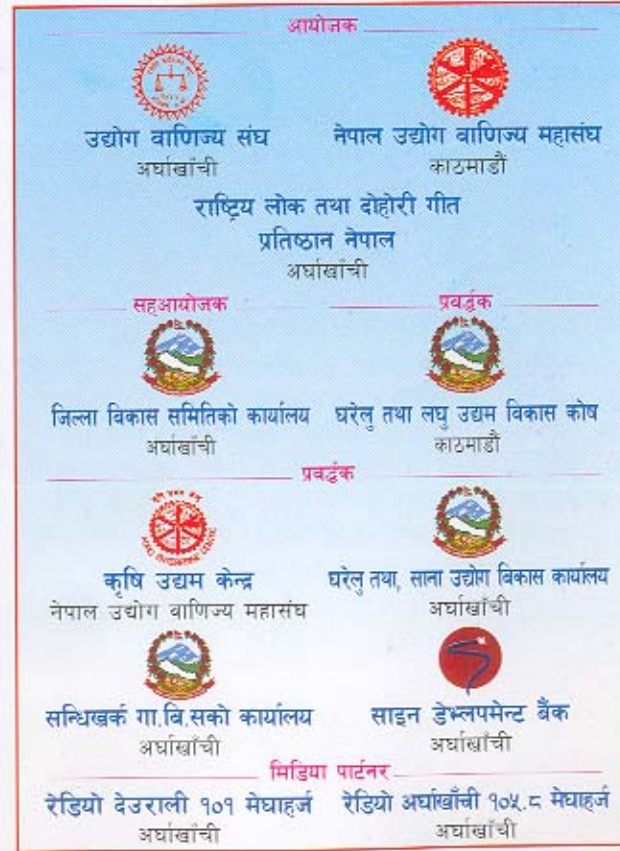 आयोजक
उद्योग वाणिज्य संघ
अर्घाखाँची
नेपाल उद्योग वाणिज्य महासंघ
काठमाडौं
राष्ट्रिय लोक तथा दोहोरी गीत
प्रतिष्ठान नेपाल
अर्घाखाँची
सहआयोजक
जिल्ला विकास समितिको कार्यालय
अर्घाखाँची
प्रवर्द्धक
घरेलु तथा लघु उद्यम विकास कोष
काठमाडौं
प्रवर्द्धक
कृषि उद्यम केन्द्र
नेपाल उद्योग वाणिज्य महासंघ
घरेलु तथा, साना उद्योग विकास कार्यालय
अर्घाखाँची
सन्धिखर्क गा.बि.सको कार्यालय
अर्घाखाँची
साइन डेभ्लपमेन्ट बैंक
अर्घाखाँची
मिडिया पार्टनर
रेडियो देउराली १०१ मेघाहर्ज
अर्घाखाँची
रेडियो अर्घाखाँची १०५.८ मेघाहर्ज
अर्घाखाँची